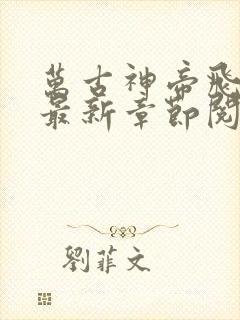 萬古神帝飛
最新章節閱
劉菲文